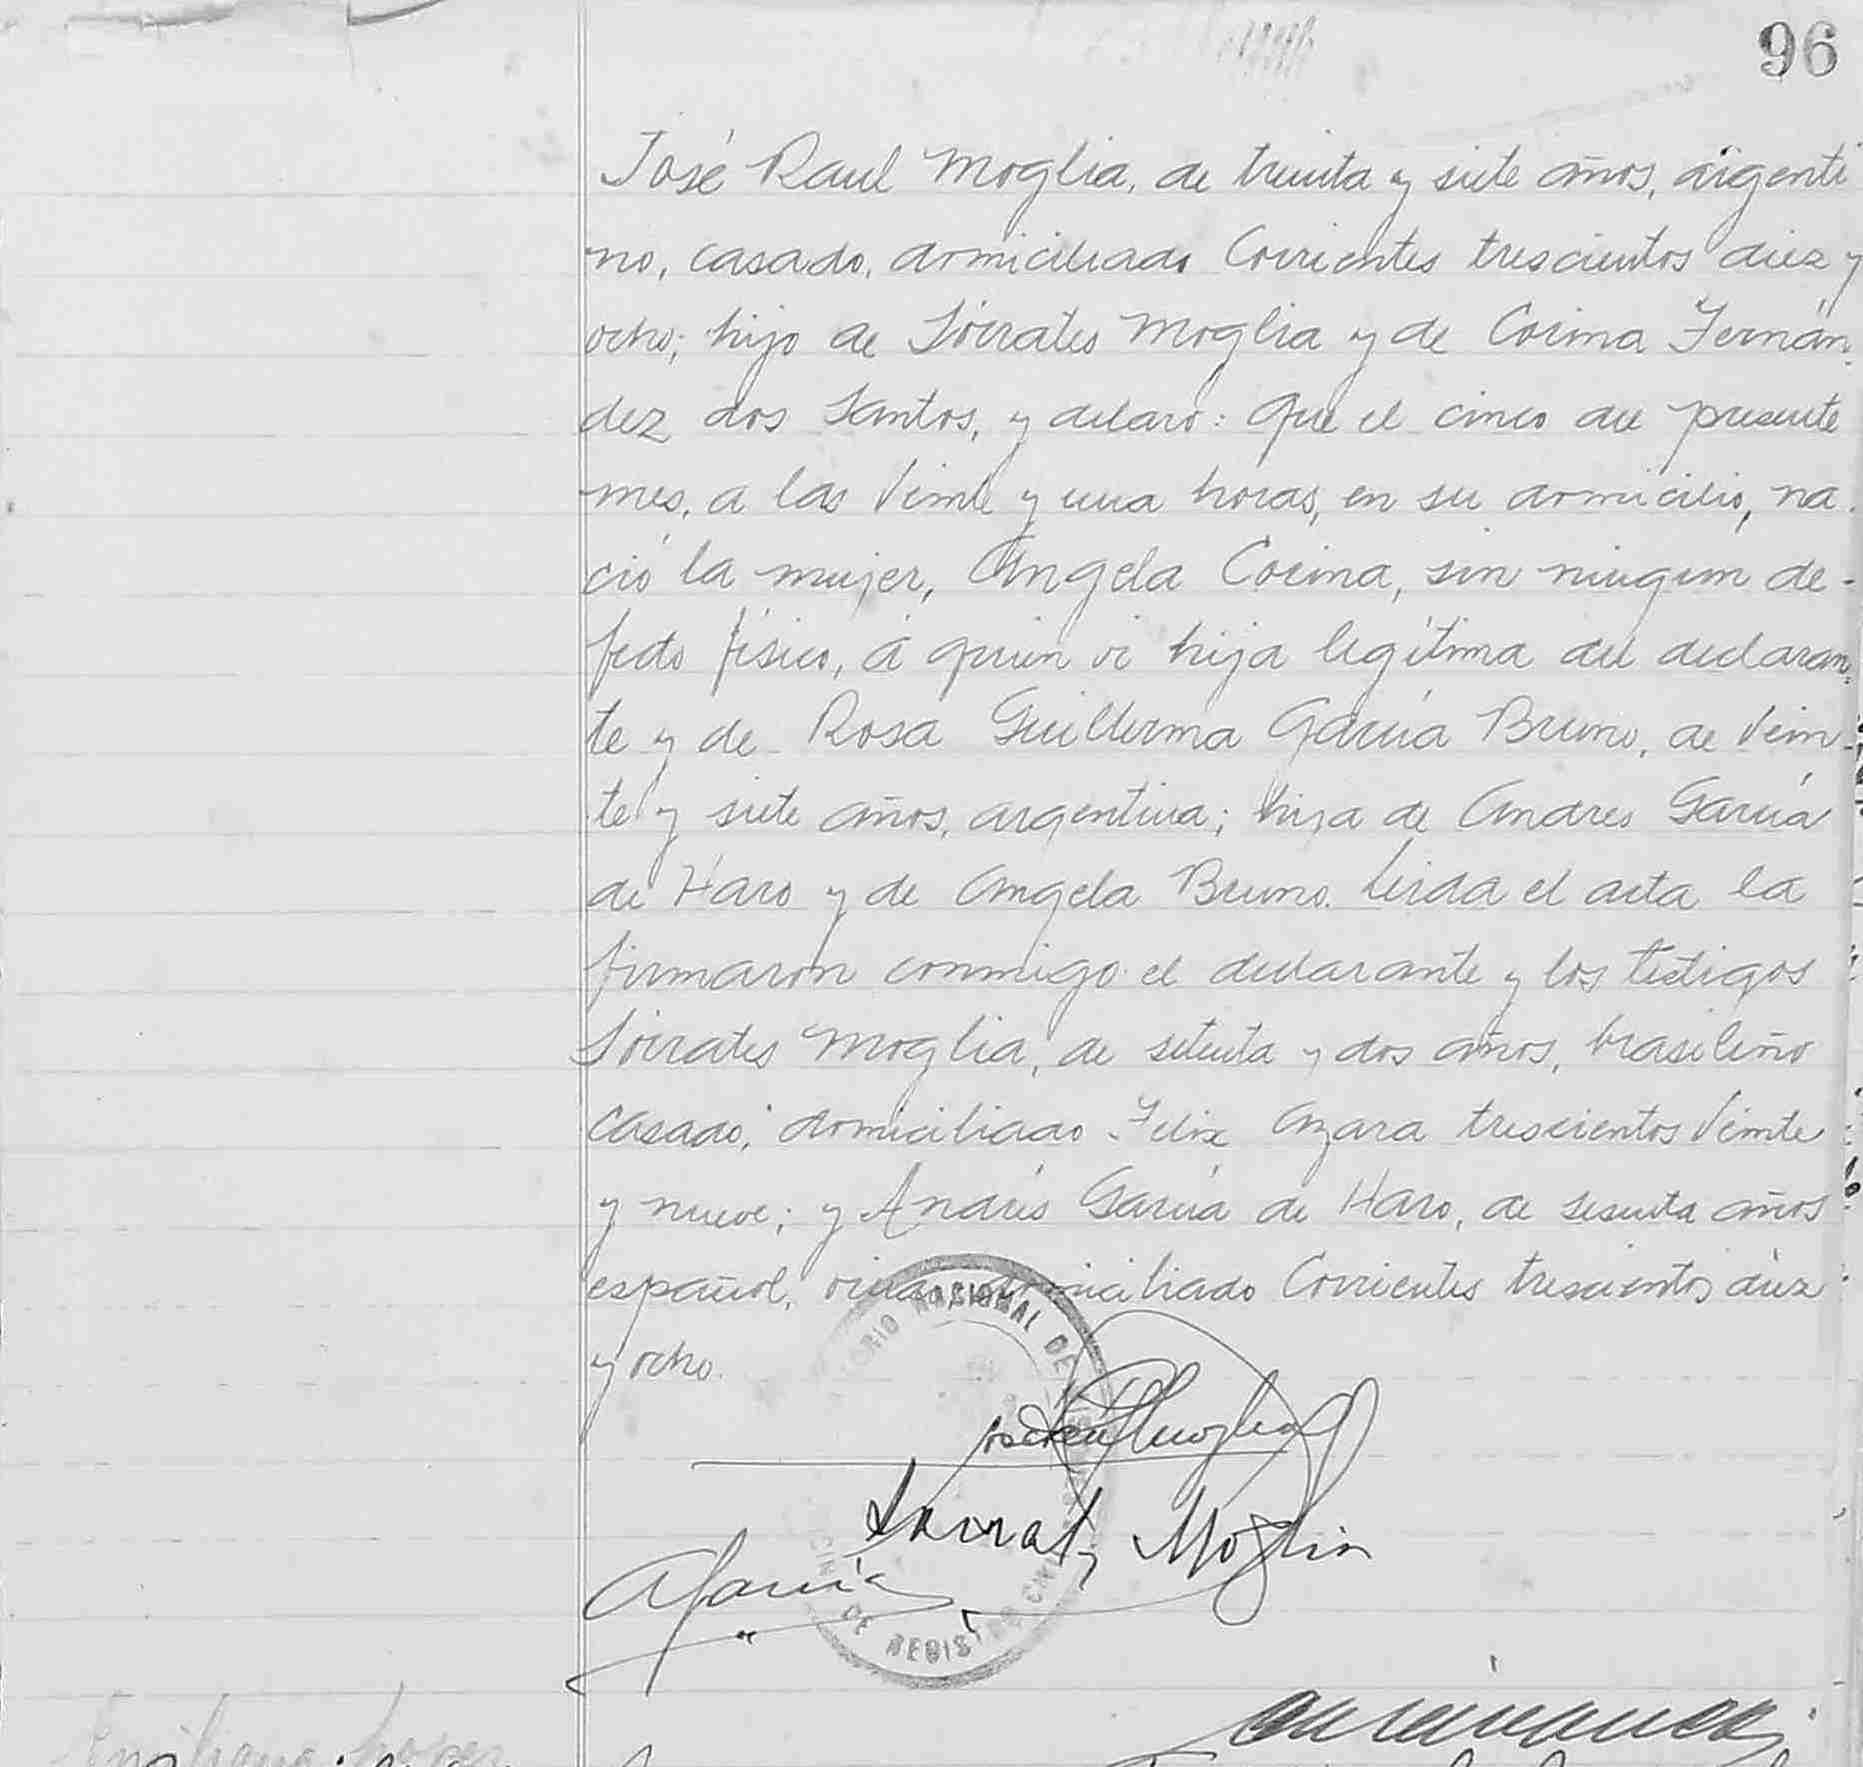 96
José Raul Moglia, de treinta y siete años, argenti
no, casado, domiciliado Corrientes trescientos diez y
ocho; hijo de Sócrates Moglia y de Corina Fernán-
dez dos Santos, y declaró: Que el cinco del presente
mes, a las veinte y una horas, en su domicilio, na-
ció la mujer, Angela Corina, sin ningún de-
fecto físico, á quien vi hija legítima del declaran-
te y de Rosa Guillerma García Bruno, de vein-
te y siete años, argentina; hija de Andres García
de Haro y de Angela Bruno. Leida el acta la
firmaron conmigo el declarante y los testigos
Sócrates Moglia, de setenta y dos años, brasileño
casado, domiciliado Felix Azara trescientos veinte
y nueve; y Andrés García de Haro, de sesenta años
español, viudo, domiciliado Corrientes trescientos diez
y ocho.
NACIONAL DE
José Raul Moglia
Socrates Moglia
A García
DE REGISTRO CIVIL